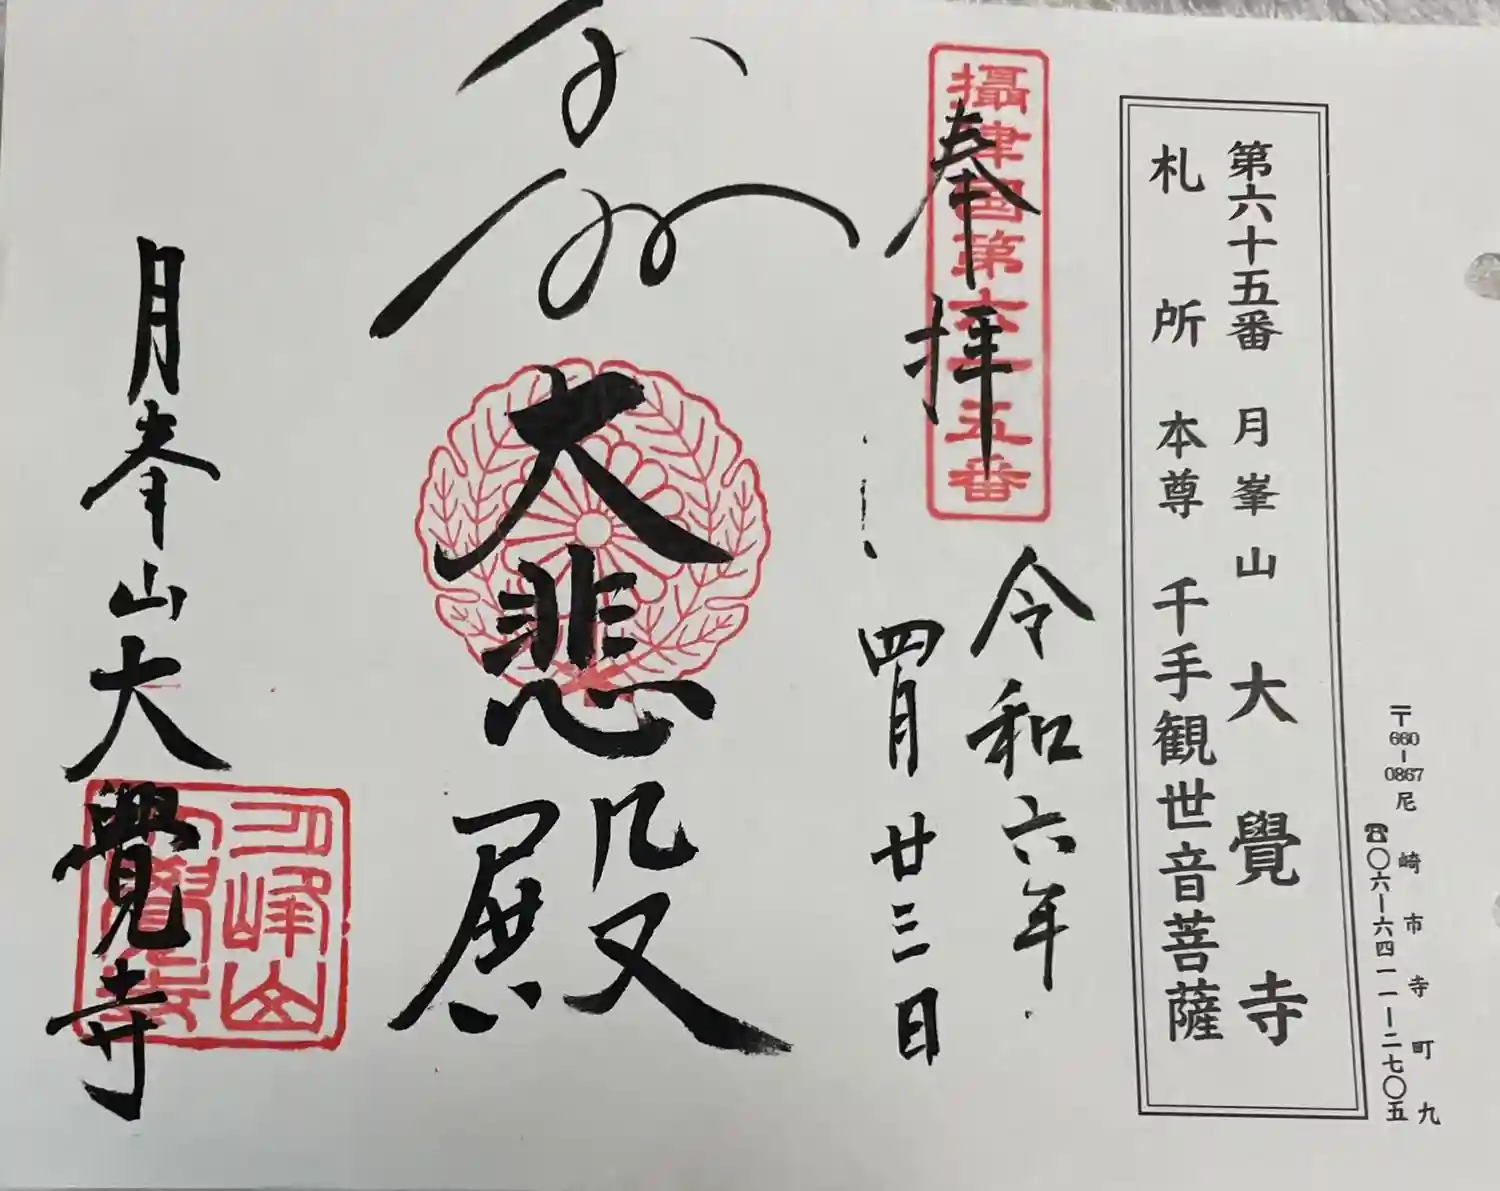 〒660-0867 尼崎市寺町九
☎〇六-六四一一-二七〇五
第六十五番 月峯山 大覺寺
札所本尊 千手観世音菩薩
攝津國第六十五番
奉拝
令和六年
四月廿三日
大悲殿
月峯山大覺寺
月峰山